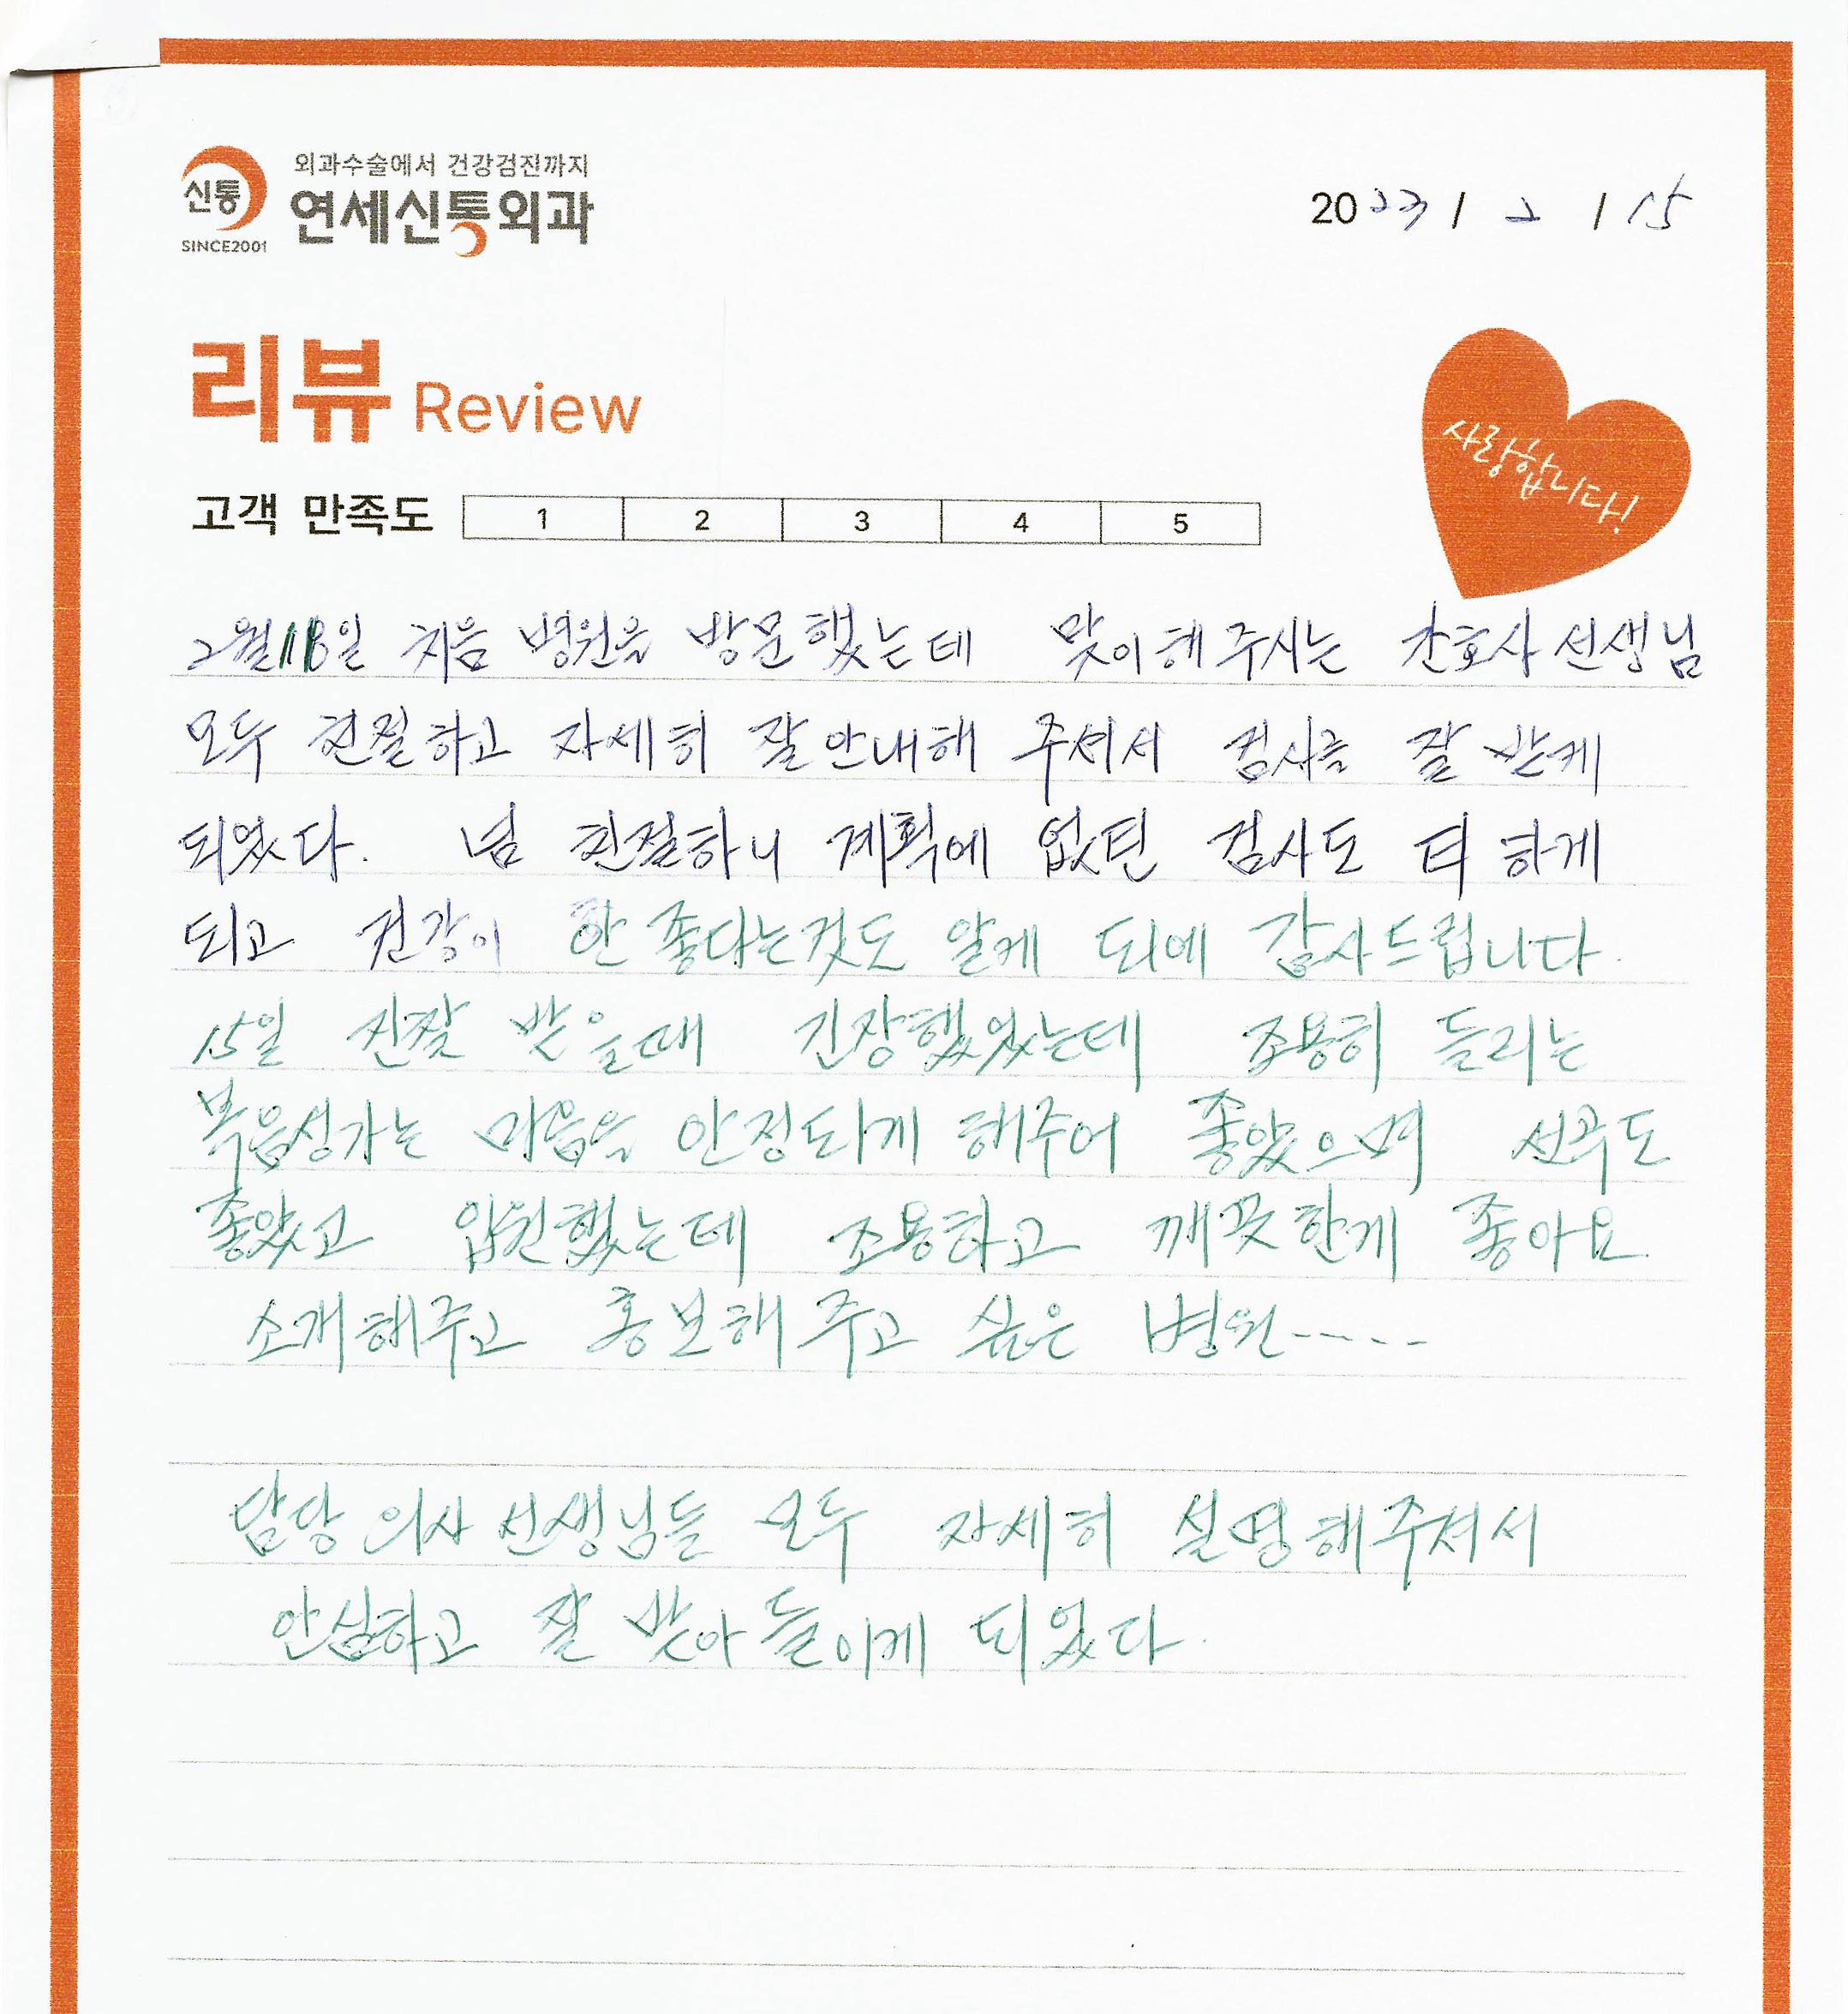 외과수술에서 건강검진까지
신통 연세신통외과
SINCE2001
2023 / 2 / 15
리뷰 Review
사랑합니다!
고객 만족도 1 2 3 4 5
2월 일 처음 병원을 방문했는데 맞이해 주시는 간호사 선생님
모두 친절하고 자세히 잘 안내해 주셔서 검사를 잘 받게
되었다. 넘 친절하니 계획에 없던 검사도 더 하게
되고 건강이 안 좋다는것도 알게 되에 감사드립니다.
15일 진찰 받을때 긴장했었는데 조용히 들리는
복음성가는 마음을 안정되게 해주어 좋았으며 선곡도
좋았고 입원했는데 조용하고 깨끗한게 좋아요.
소개해주고 홍보해 주고 싶은 병원-----
담당 의사 선생님들 모두 자세히 설명해주셔서
안심하고 잘 받아 들이게 되었다.